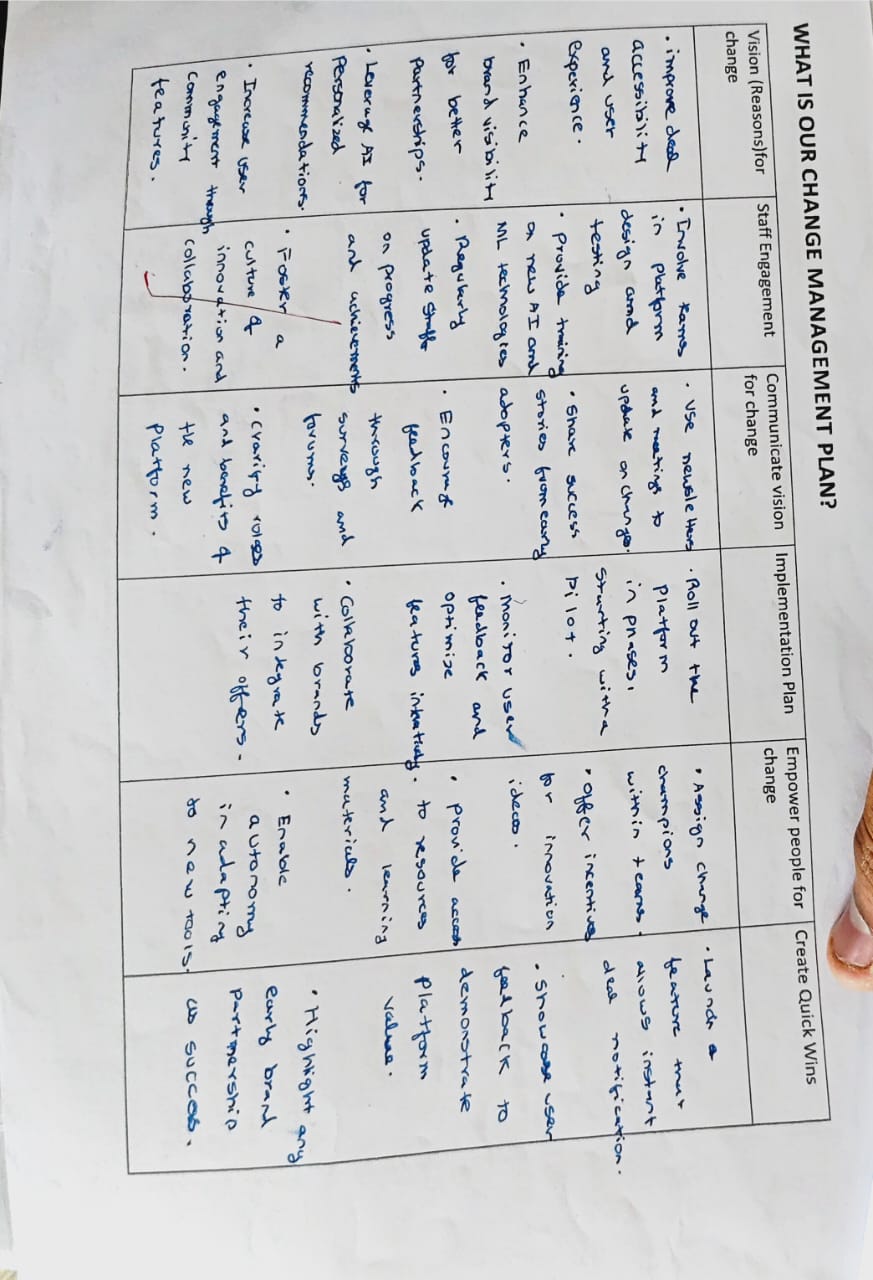 WHAT IS OUR CHANGE MANAGEMENT PLAN?
Vision (Reasons)for
change
• improve deal
accessibility
and user
experience.
• Enhance
brand visibility
for better
Partnerships.
• Leverage AI for
Personalized
recommendations.
• Increase user
engagement through
Community
features.
Staff Engagement
• Involve teams
in Platform
design and
testing
• Provide training
on new AI and
ML technologies
• Regularly
update staff
on progress
and achievements
• Foster a
culture of
innovation and
collaboration.
Communicate vision
for change
• Use newsletters
and meetings to
update on changes.
• Share success
stories from early
adopters.
• Encourage
feedback
through
surveys and
forums.
• Clarify roles
and benefits of
the new
Platform.
Implementation Plan
• Roll out the
Platform
in phases,
starting with a
Pilot.
• Monitor user
feedback and
optimize
features iteratively.
• Collaborate
with brands
to integrate
their offers.
Empower people for
change
• Assign change
champions
within teams.
• Offer incentives
for innovation
ideas.
• Provide access
to resources
and learning
materials.
• Enable
autonomy
in adapting
to new tools.
Create Quick Wins
• Launch a
feature that
allows instant
deal notification.
• Showcase user
feedback to
demonstrate
Platform
value.
• Highlight any
early brand
Partnership
as success.